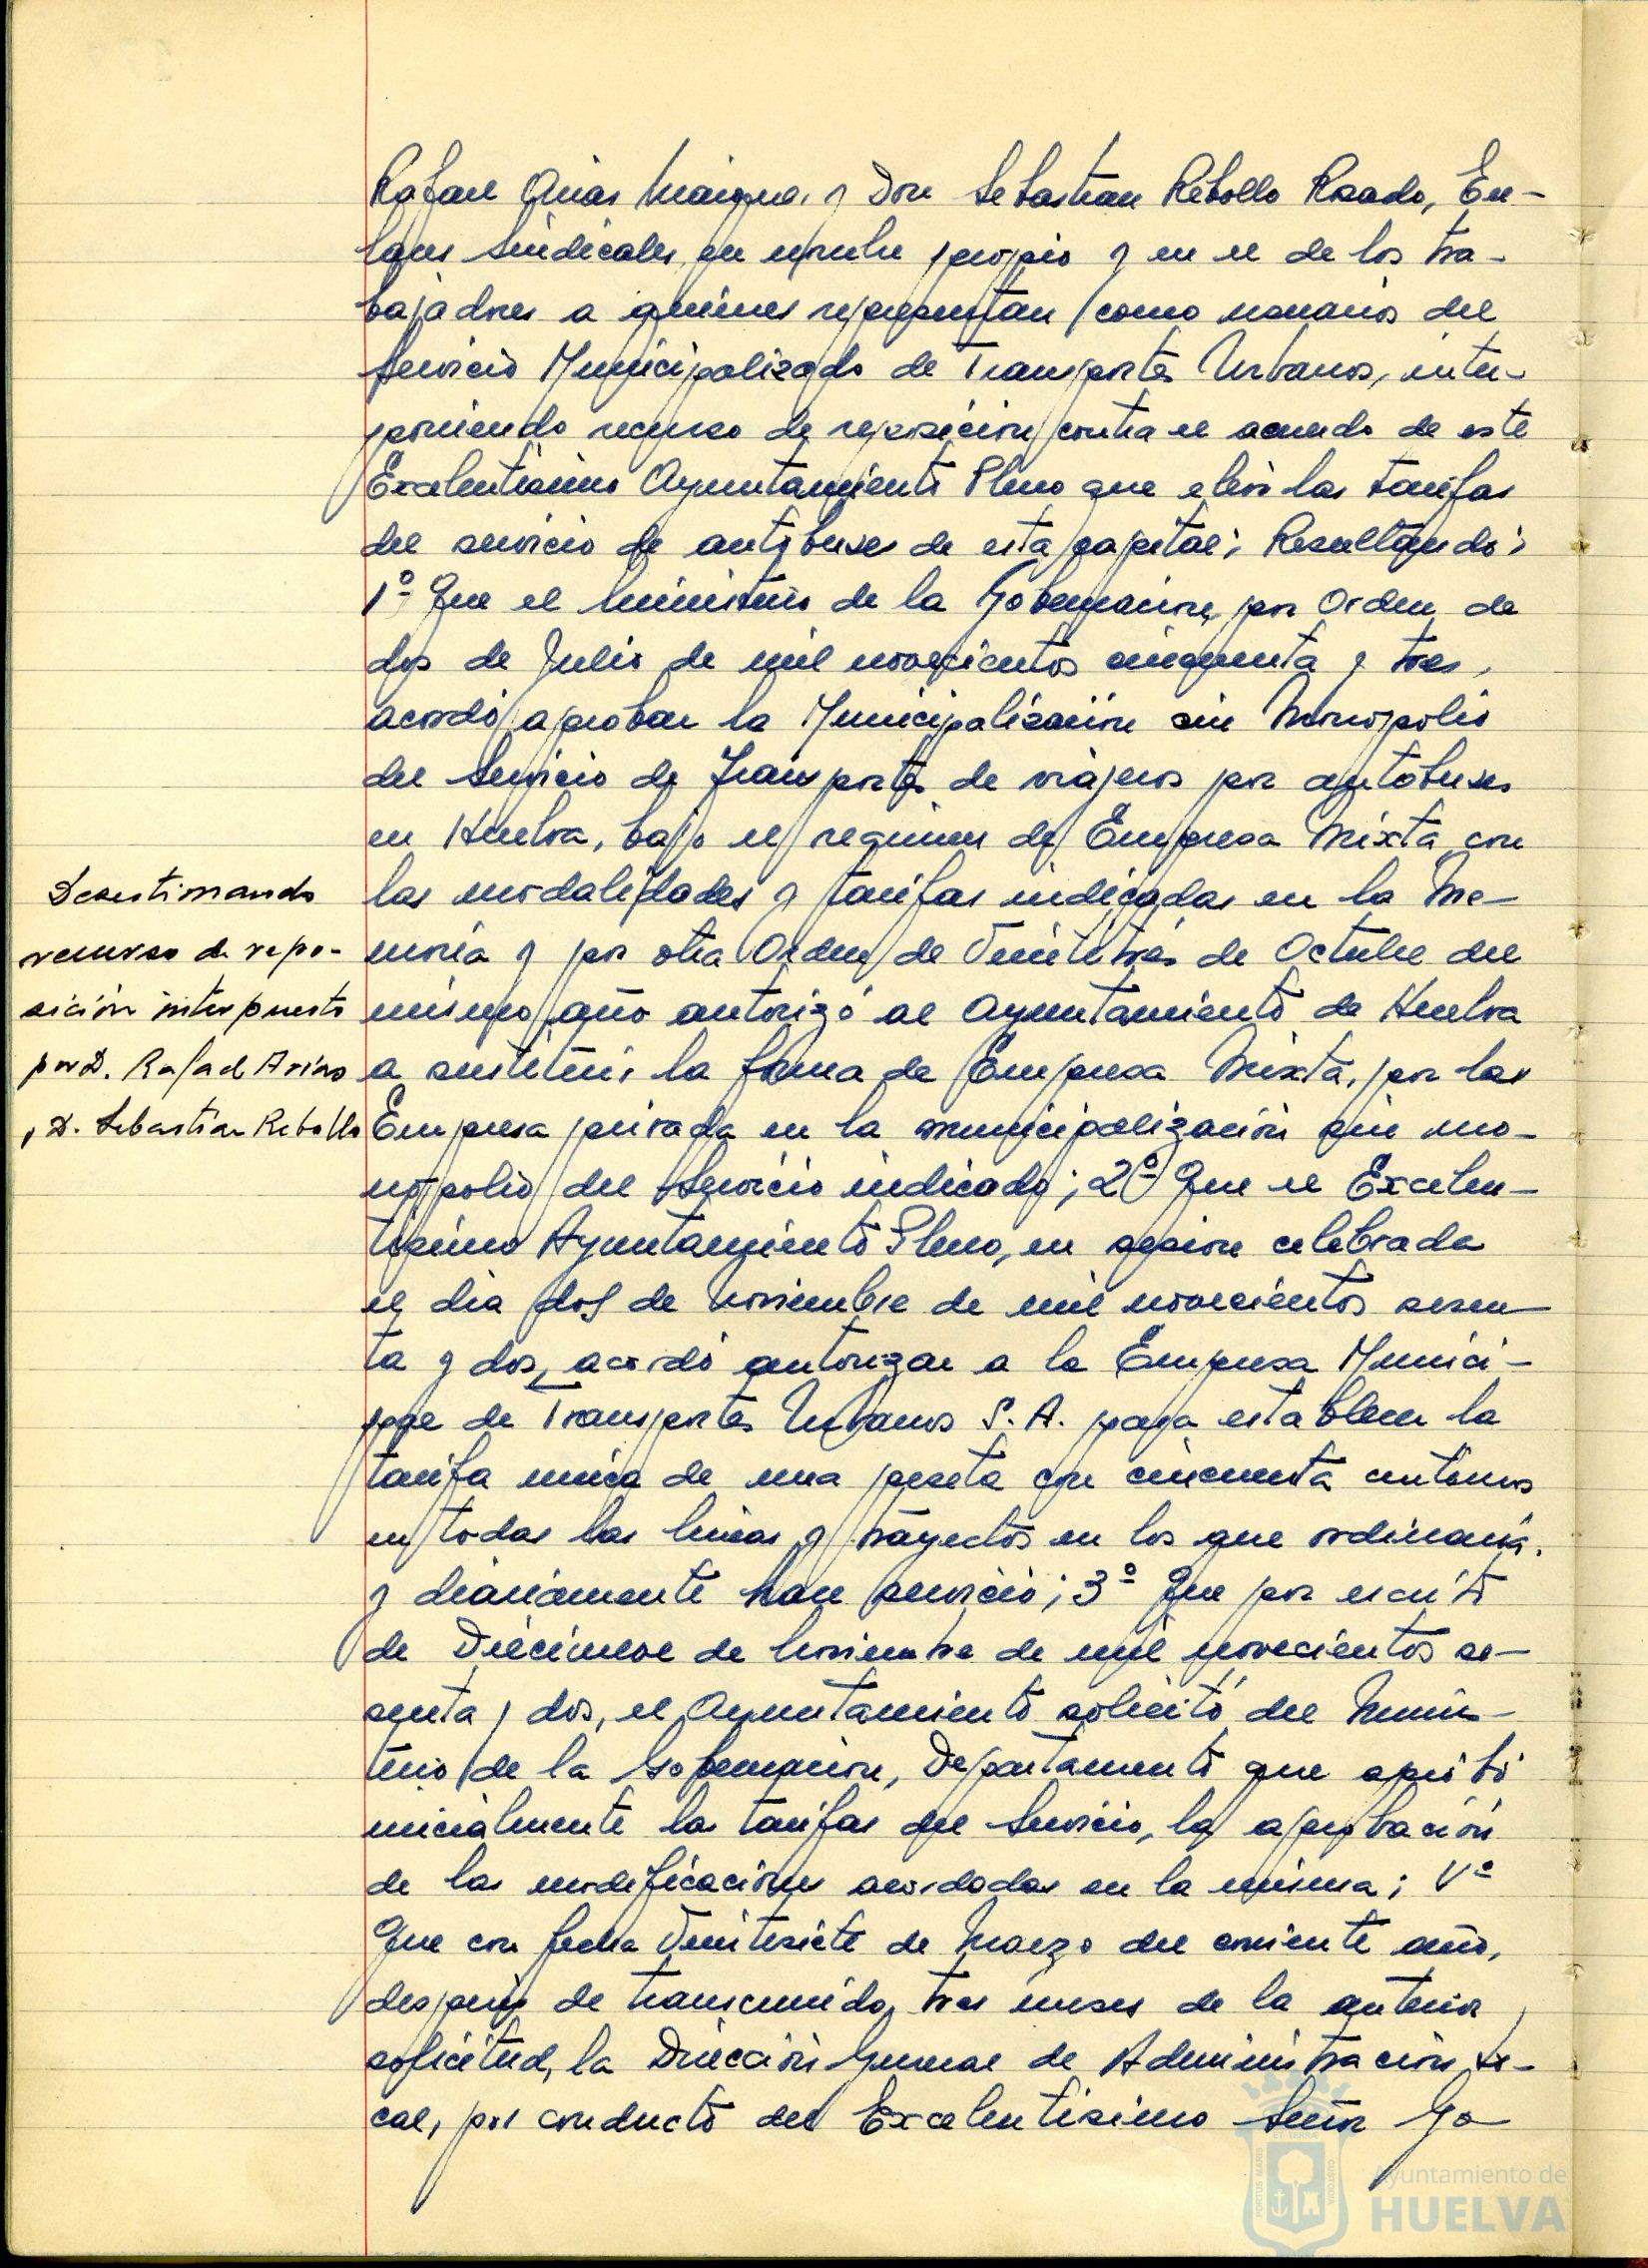 Rafael Arias y Don Sebastian Rebollo Rosado, En-
laces Sindicales, en nombre propio y en el de los tra-
bajadores a quienes representan como usuarios del
Servicio Municipalizado de Transportes Urbanos, inter-
poniendo recurso de reposición contra el acuerdo de este
Excelentisimo Ayuntamiento Pleno que elevó las tarifas
del servicio de autobuses de esta capital; Resultando:
1º Que el Ministerio de la Gobernacion, por Orden de
dos de Julio de mil novecientos cincuenta y tres,
acordó aprobar la Municipalización sin Monopolio
del Servicio de Transportes de viajeros por autobuses
en Huelva, bajo el regimen de Empresa Mixta con
las modalidades y tarifas indicadas en la Me-
moria y por otra Orden de Veintitrés de Octubre del
mismo año autorizó al Ayuntamiento de Huelva
a sustituir la forma de Empresa Mixta, por la
Empresa privada en la municipalización sin mo-
nopolio del Servicio indicado; 2º Que el Excelen-
tisimo Ayuntamiento Pleno, en sesion celebrada
el dia dos de Noviembre de mil novecientos sesen-
ta y dos, acordó autorizar a la Empresa Munici-
pal de Transportes Urbanos S.A. para establecer la
tarifa unica de una peseta con cincuenta centimos
en todas las lineas y trayectos en los que ordinaria
y diariamente hace servicio; 3º Que por escrito
de Diecinueve de Noviembre de mil novecientos se-
senta y dos, el Ayuntamiento solicitó del Minis-
terio de la Gobernacion, Departamento que aprobó
inicialmente las tarifas del Servicio, la aprobación
de las modificaciones acordadas en la misma; Vº
Que con fecha Veintisiete de Marzo del corriente año,
despues de transcurridos tres meses de la anterior
solicitud, la Dirección General de Administración Lo-
cal, por conducto del Excelentisimo Señor Go-
Desestimando
recurso de repo-
sición interpuesto
por D. Rafael Arias
y D. Sebastian Rebollo
Ayuntamiento de
HUELVA